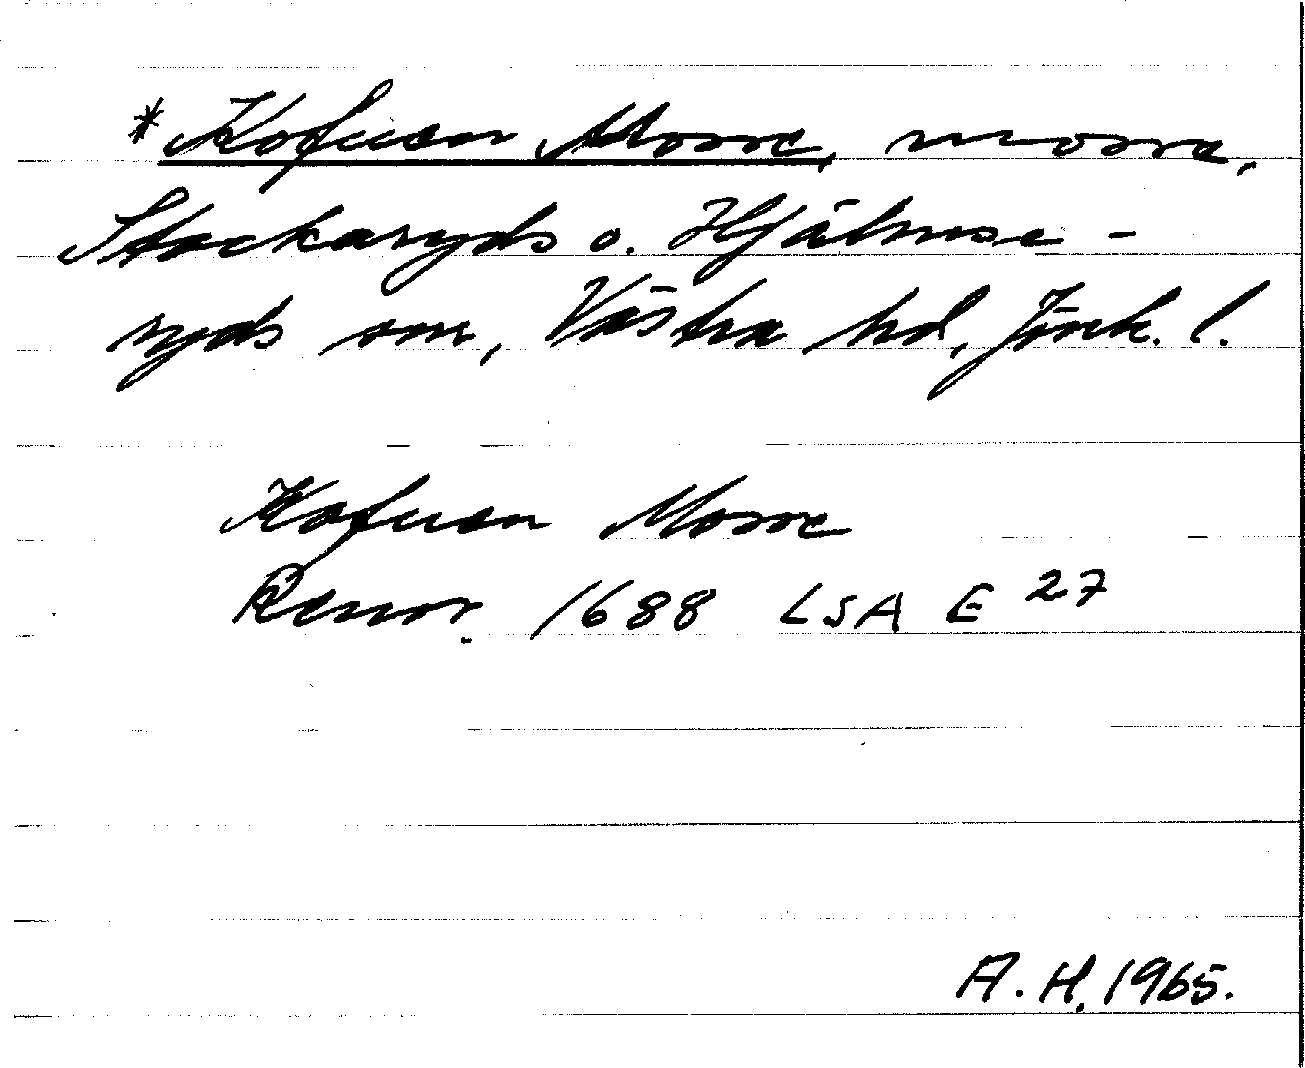 *Kofuan Mosse, mosse,
Stockaryds o. Hjälmse-
ryds snr, Västra hd, Jönk. l.
Kofuan Mosse
Renov. 1688 LSA E 27
A. H. 1965.